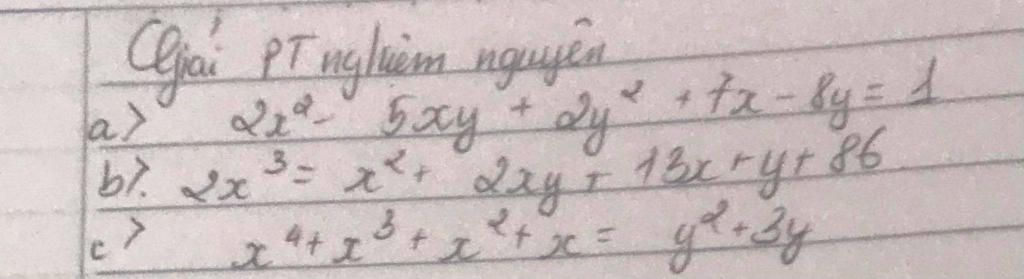 Giải PT nghiệm nguyên
a> 2x² - 5xy + 2y² + 7x - 8y = 1
b>. 2x³ = x² + 2xy + 13x + y + 86
c> x⁴ + x³ + x² + x = y² + 3y